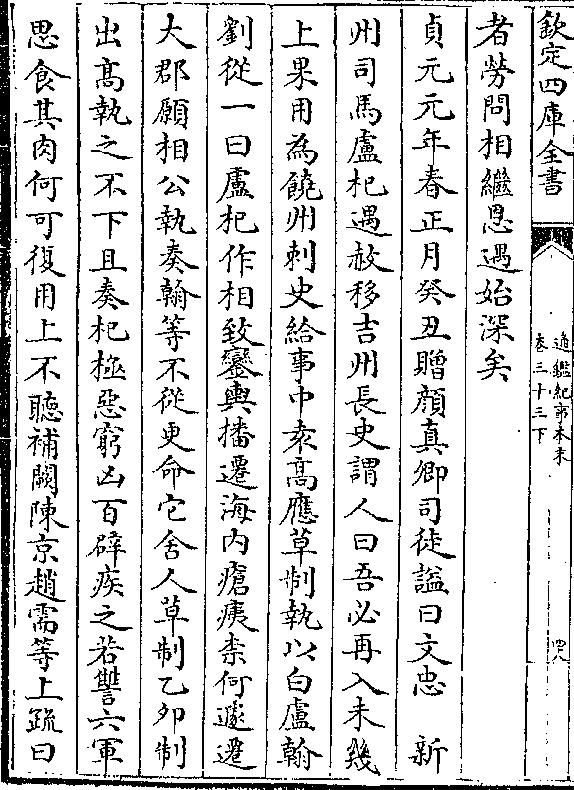 欽定四庫全書
通鑑紀事本末
卷三十三下
四八
者勞問相繼恩遇始深矣
貞元元年春正月癸丑贈顔真卿司徒謚曰文忠　新
州司馬盧杞遇赦移吉州長史謂人曰吾必再入未幾
上果用為饒州刺史給事中袁髙應草制執以白盧翰
劉從一曰盧杞作相致鑾輿播遷海内瘡痍柰何遽遷
大郡願相公執奏翰等不從更命它舍人草制乙夘制
出髙執之不下且奏杞極惡窮凶百辟疾之若讐六軍
思食其肉何可復用上不聽補闕陳京趙需等上疏曰